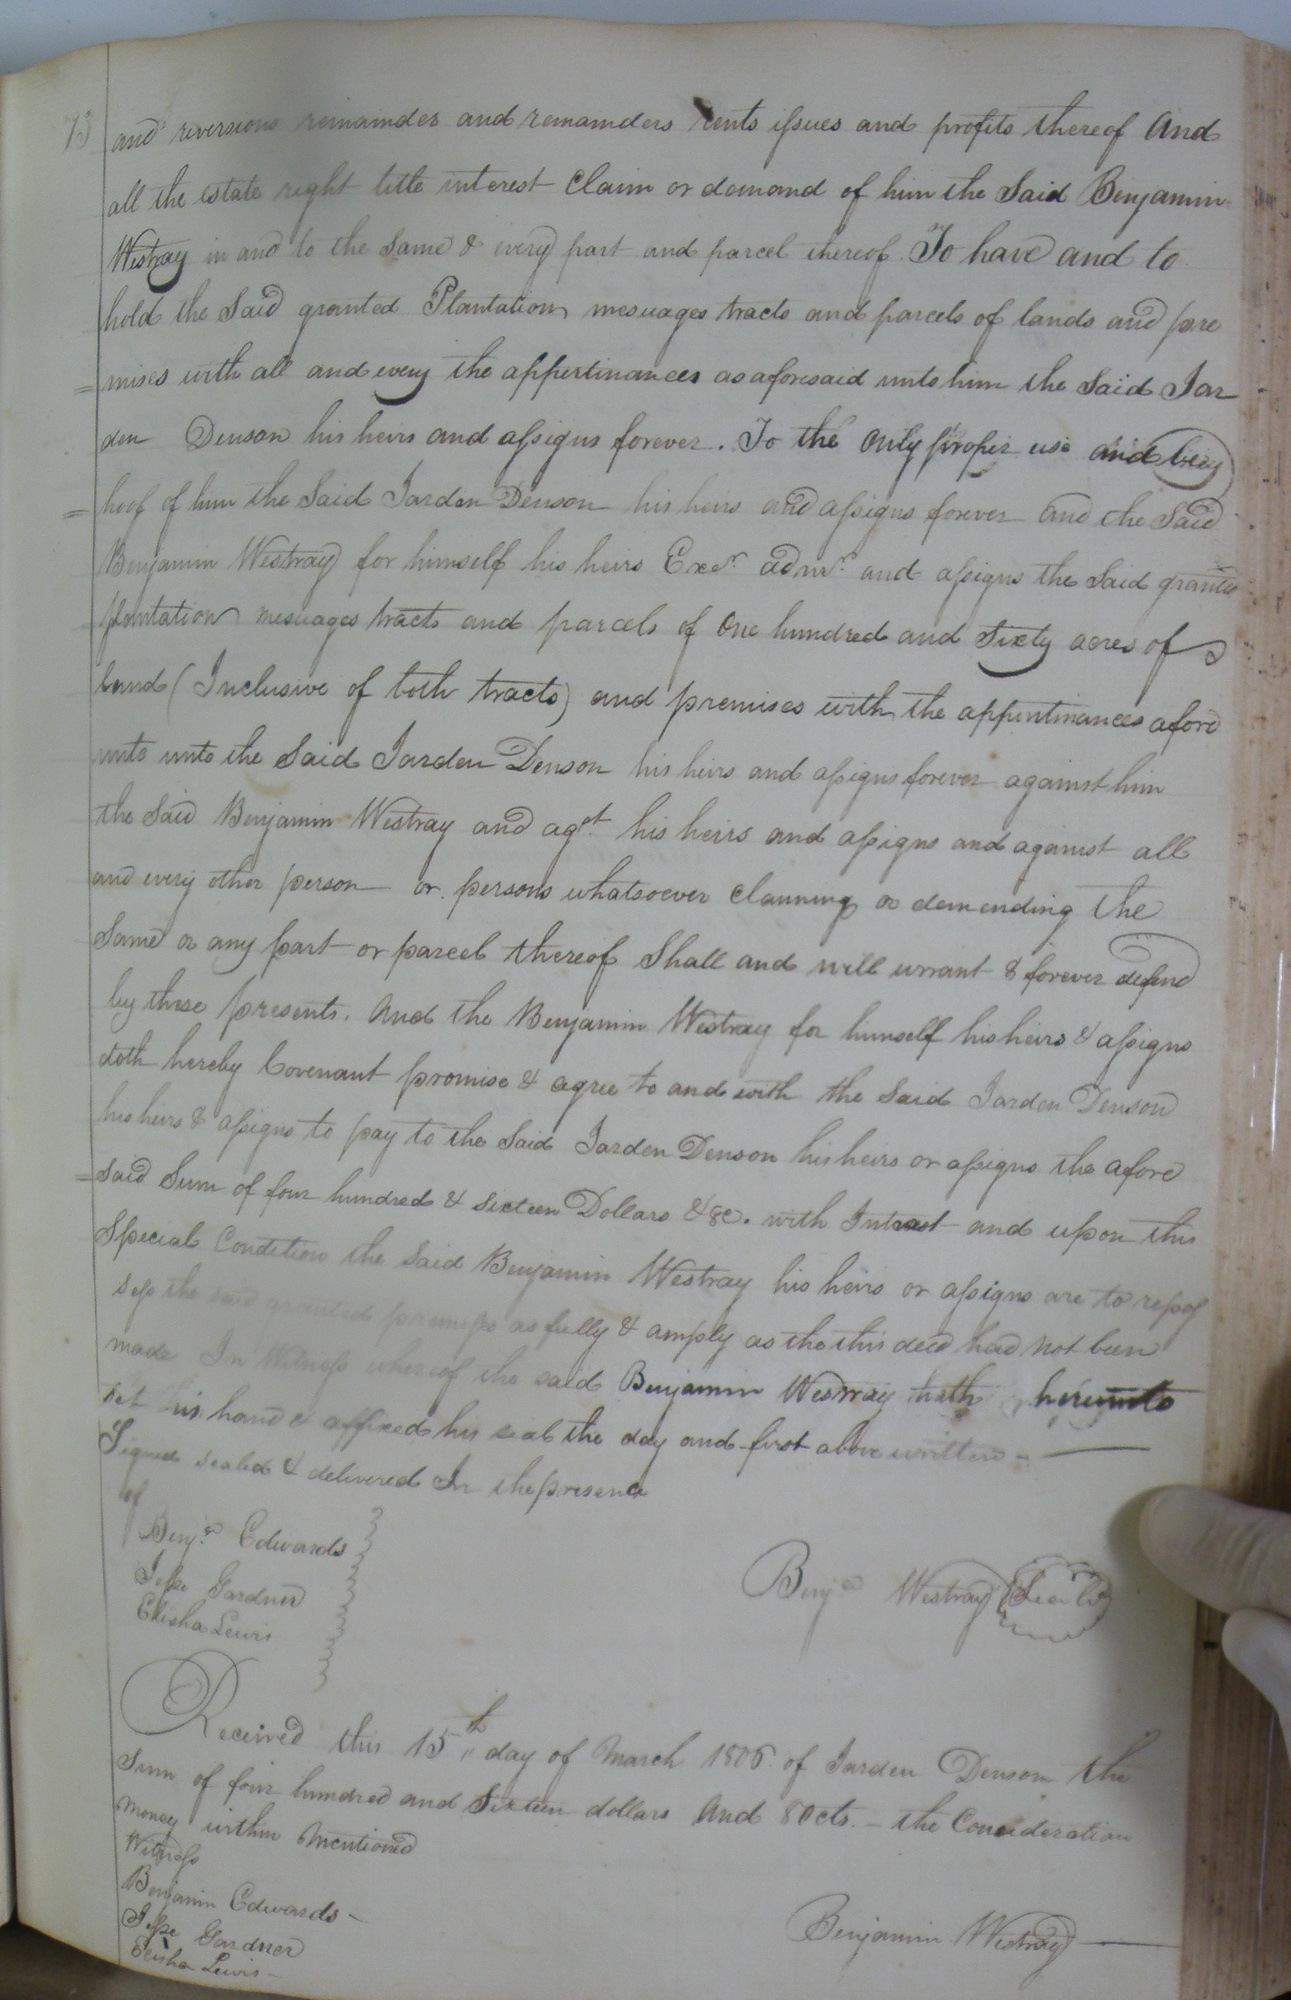 73
and reversions remainder and remainders rents issues and profits thereof And
all the estate right title interest Claim or demand of him the Said Benjamin
Westray in and to the Same & every part and parcel thereof To have and to
hold the Said granted Plantation mesuages tracts and parcels of lands and pre
= mises with all and every the appertinances as aforesaid unto him the Said Jar
den Denson his heirs and assigns forever. To the Only proper use and
= hoof of him the Said Jarden Denson his heirs and assigns forever and the Said
Benjamin Westray for himself his heirs Exer. admr. and assigns the Said granted
plantation mesuages tracts and parcels of One hundred and Sixty acres of
land (Inclusive of both tracts) and premises with the appertinances afore
unto unto the Said Jarden Denson his heirs and assigns forever against him
the Said Benjamin Westray and agst. his heirs and assigns and against all
and every other person or persons whatsoever Claiming or demending the
Same or any part or parcel thereof Shall and will wrrant & forever defend
by these presents. And the Benjamin Westray for himself his heirs & assigns
doth hereby Covenant promise & agree to and with the Said Jarden Denson
his heirs & assigns to pay to the Said Jarden Denson his heirs or assigns the afore
= Said Sum of four hundred & sixteen Dollars &8c. with Intrest and upon this
Special Condition the Said Benjamin Westray his heirs or assigns are to repos
sess the said granted premises as fully & amply as tho this deed had not been
made In Witness whereof the said Benjamin Westray hath hereunto
set his hand & affixed his seal the day and first above written —
Signed sealed & delivered In the presence
of
Benja. Edwards
Jesse Gardner
Elisha Lewis
Benja Westray (Seal)
Received this 15th day of March 1806 of Jarden Denson the
Sum of four hundred and Sixteen dollars And 80cts. — the Consideration
money within Mentioned
Witness
Benjamin Edwards —
Jesse Gardner
Elisha Lewis —
Benjamin Westray —